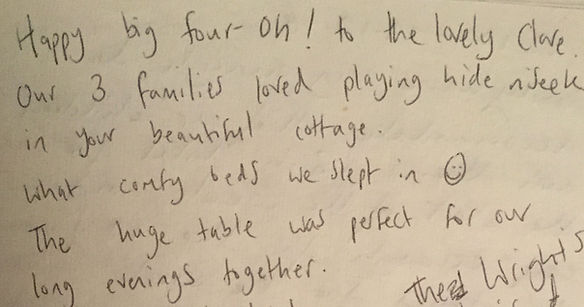 Happy big four-Oh! to the lovely Clare.
Our 3 families loved playing hide n'seek
in your beautiful cottage.
What comfy beds we slept in ☺
The huge table was perfect for our
long evenings together.
The Wright's